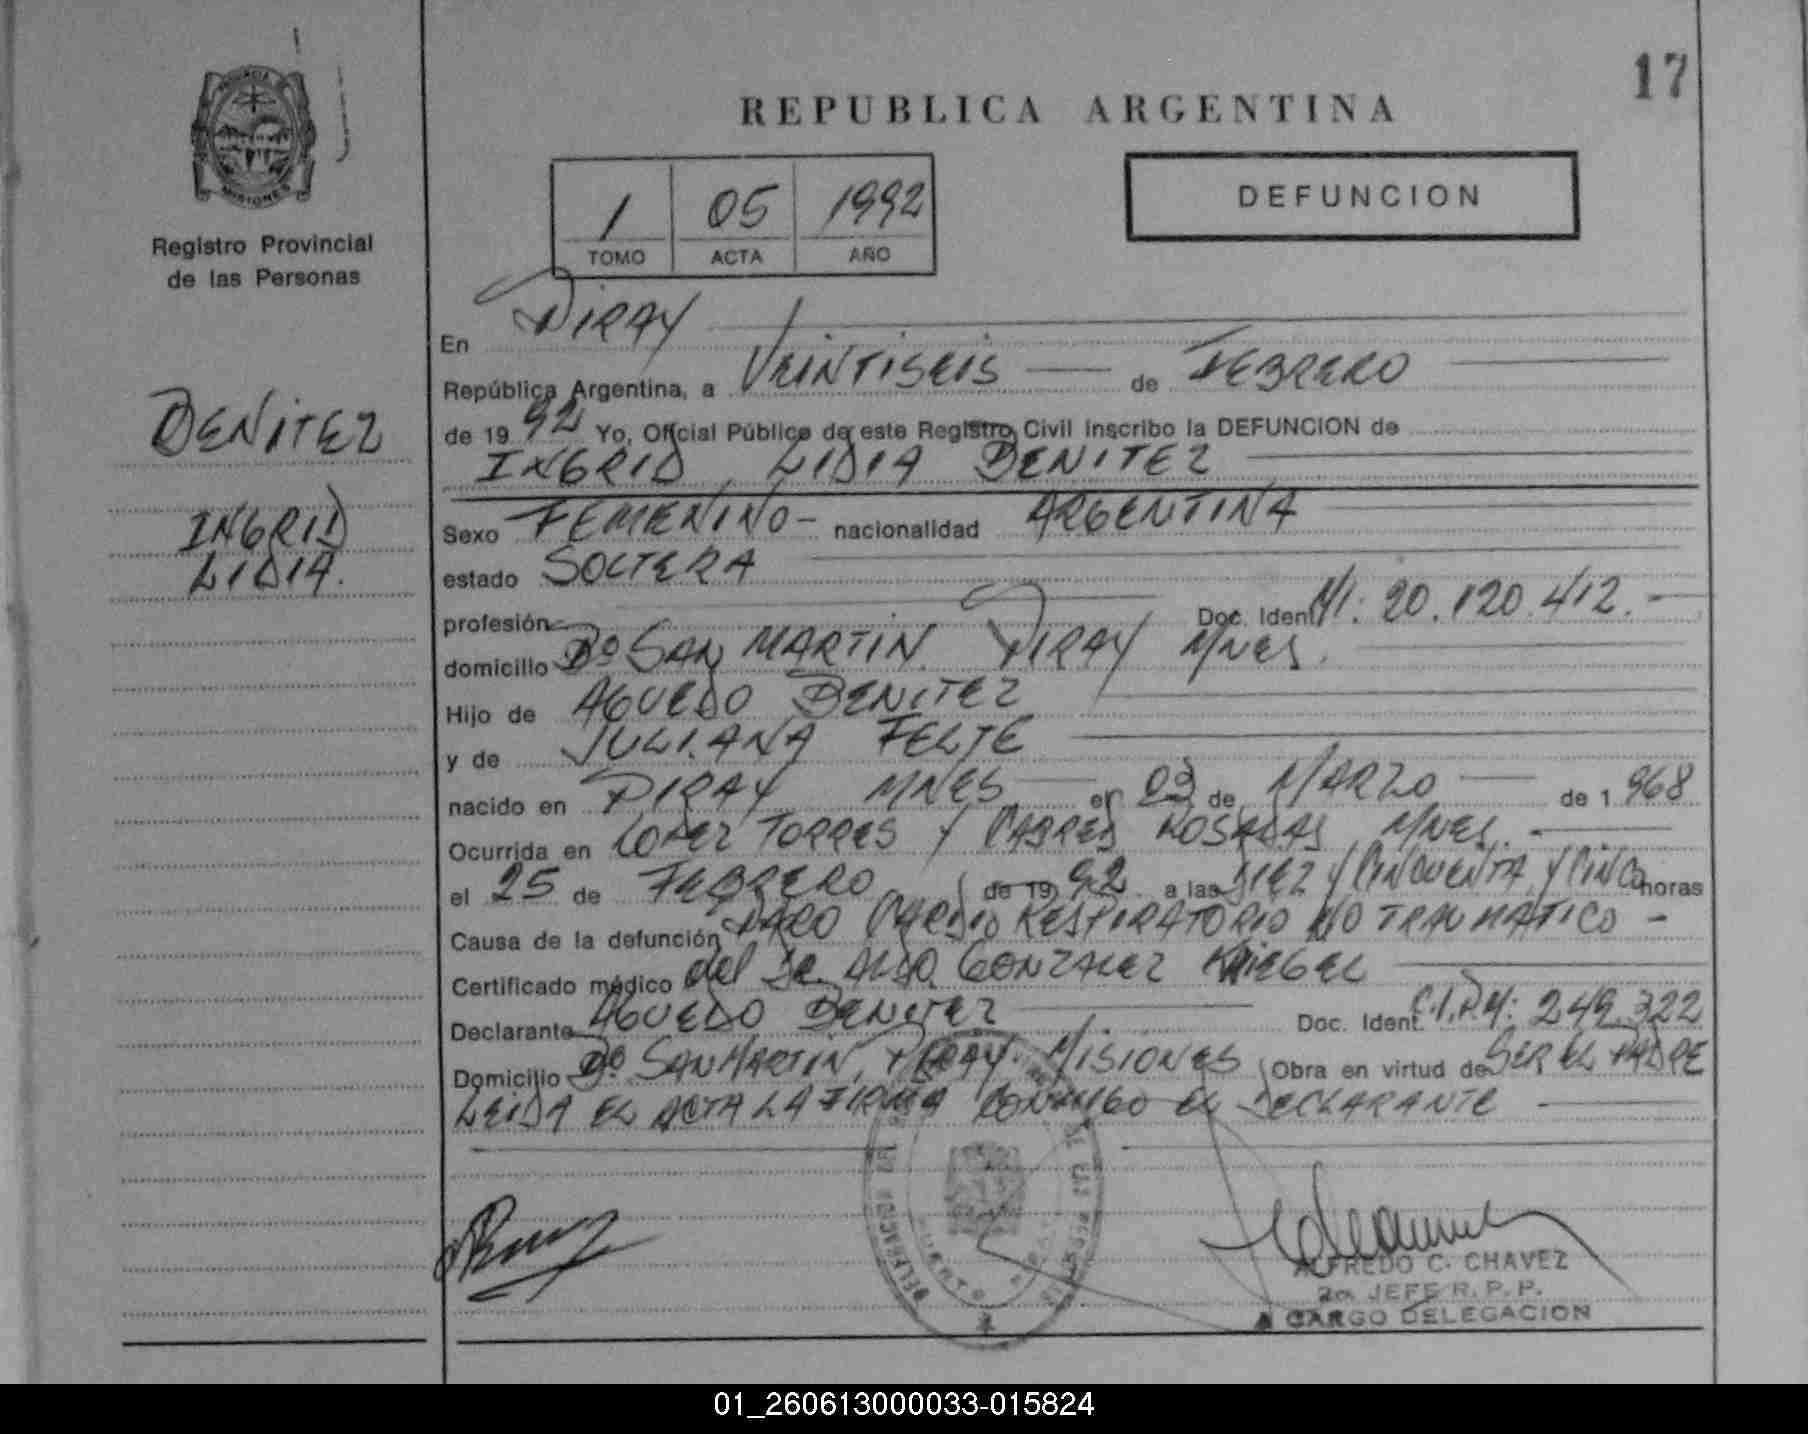 17
REPUBLICA ARGENTINA
MISIONES
Registro Provincial
de las Personas
1 05 1992
TOMO ACTA AÑO
DEFUNCION
BENITEZ
INGRID
LIDIA.
En PIRAY
República Argentina, a VEINTISEIS de FEBRERO
de 1992 Yo, Oficial Público de este Registro Civil inscribo la DEFUNCION de
INGRID LIDIA BENITEZ
Sexo FEMENINO - nacionalidad ARGENTINA
estado SOLTERA
profesión Doc. Ident. M.I. 20.120.412.
domicilio Bº SAN MARTIN PIRAY MNES.
Hijo de AGUEDO BENITEZ
y de JULIANA FELTE
nacido en PIRAY MNES en 03 de MARZO de 1968
Ocurrida en LOPEZ TORRES Y CABRED POSADAS MNES.
el 25 de FEBRERO de 1992 a las DIEZ Y CINCUENTA Y CINCO horas
Causa de la defunción PARO CARDIO RESPIRATORIO NO TRAUMATICO -
Certificado médico del Dr. ALDO GONZALEZ
Declarante AGUEDO BENITEZ Doc. Ident. C.I.P.M: 249.322
Domicilio Bº SAN MARTIN, PIRAY MISIONES Obra en virtud de SER EL PADRE
LEIDA EL ACTA LA FIRMA CONMIGO EL DECLARANTE
ALFREDO C. CHAVEZ
2o. JEFE R. P. P.
A CARGO DELEGACION
01_260613000033-015824